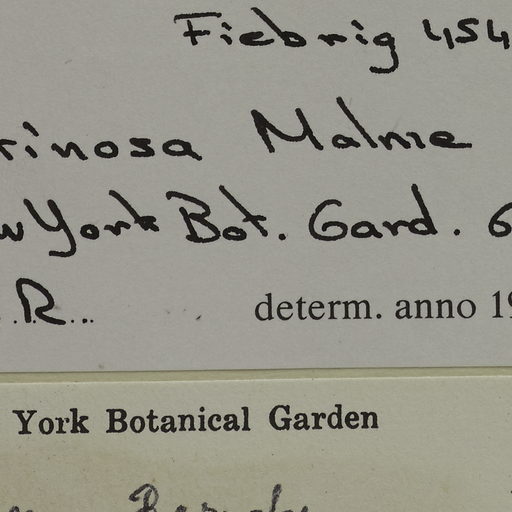 Fiebrig 454
rinosa Malme
w York Bot. Gard. 6
. R...
determ. anno 19
York Botanical Garden